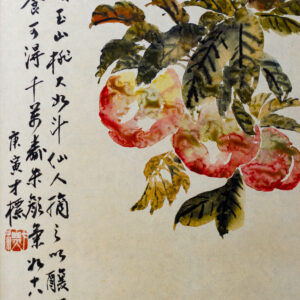 玉山桃大如斗仙人摘之以釀
食可得千萬壽朱顏
庚寅才標